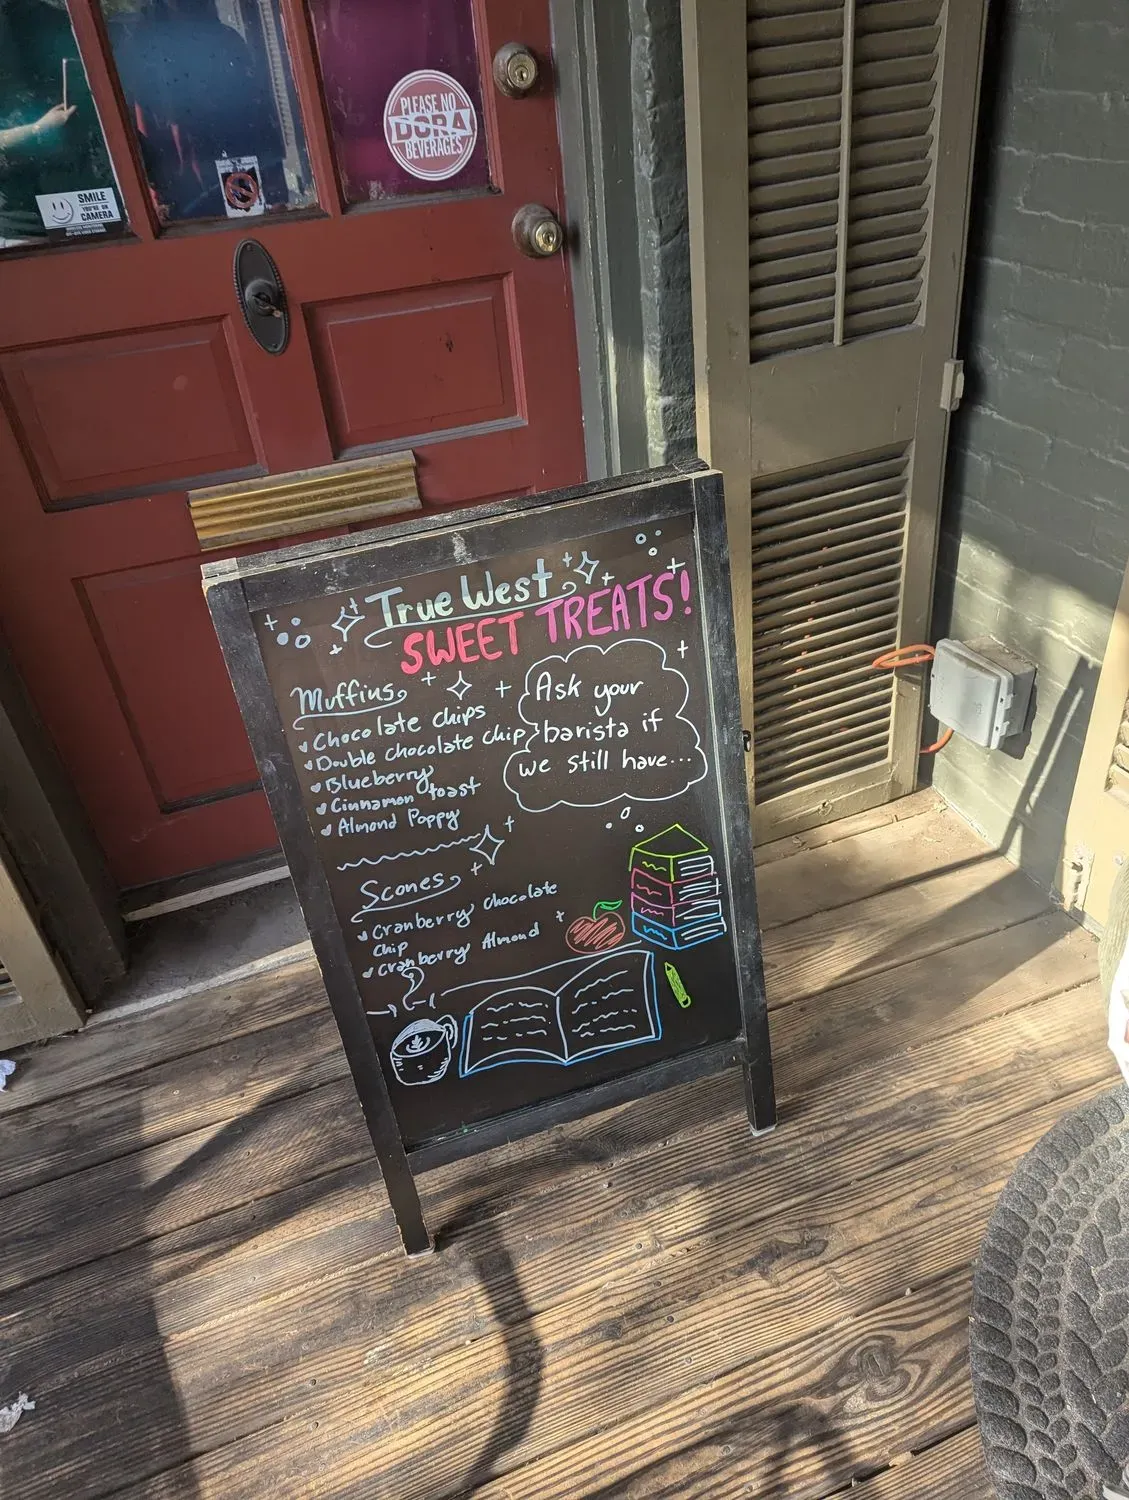 PLEASE NO
DORA
BEVERAGES
SMILE
YOU'RE ON
CAMERA
True West
SWEET TREATS!
Muffins
Chocolate chips
Double chocolate chip
Blueberry
Cinnamon toast
Almond Poppy
Ask your
barista if
we still have...
Scones
Cranberry chocolate
chip
Cranberry Almond